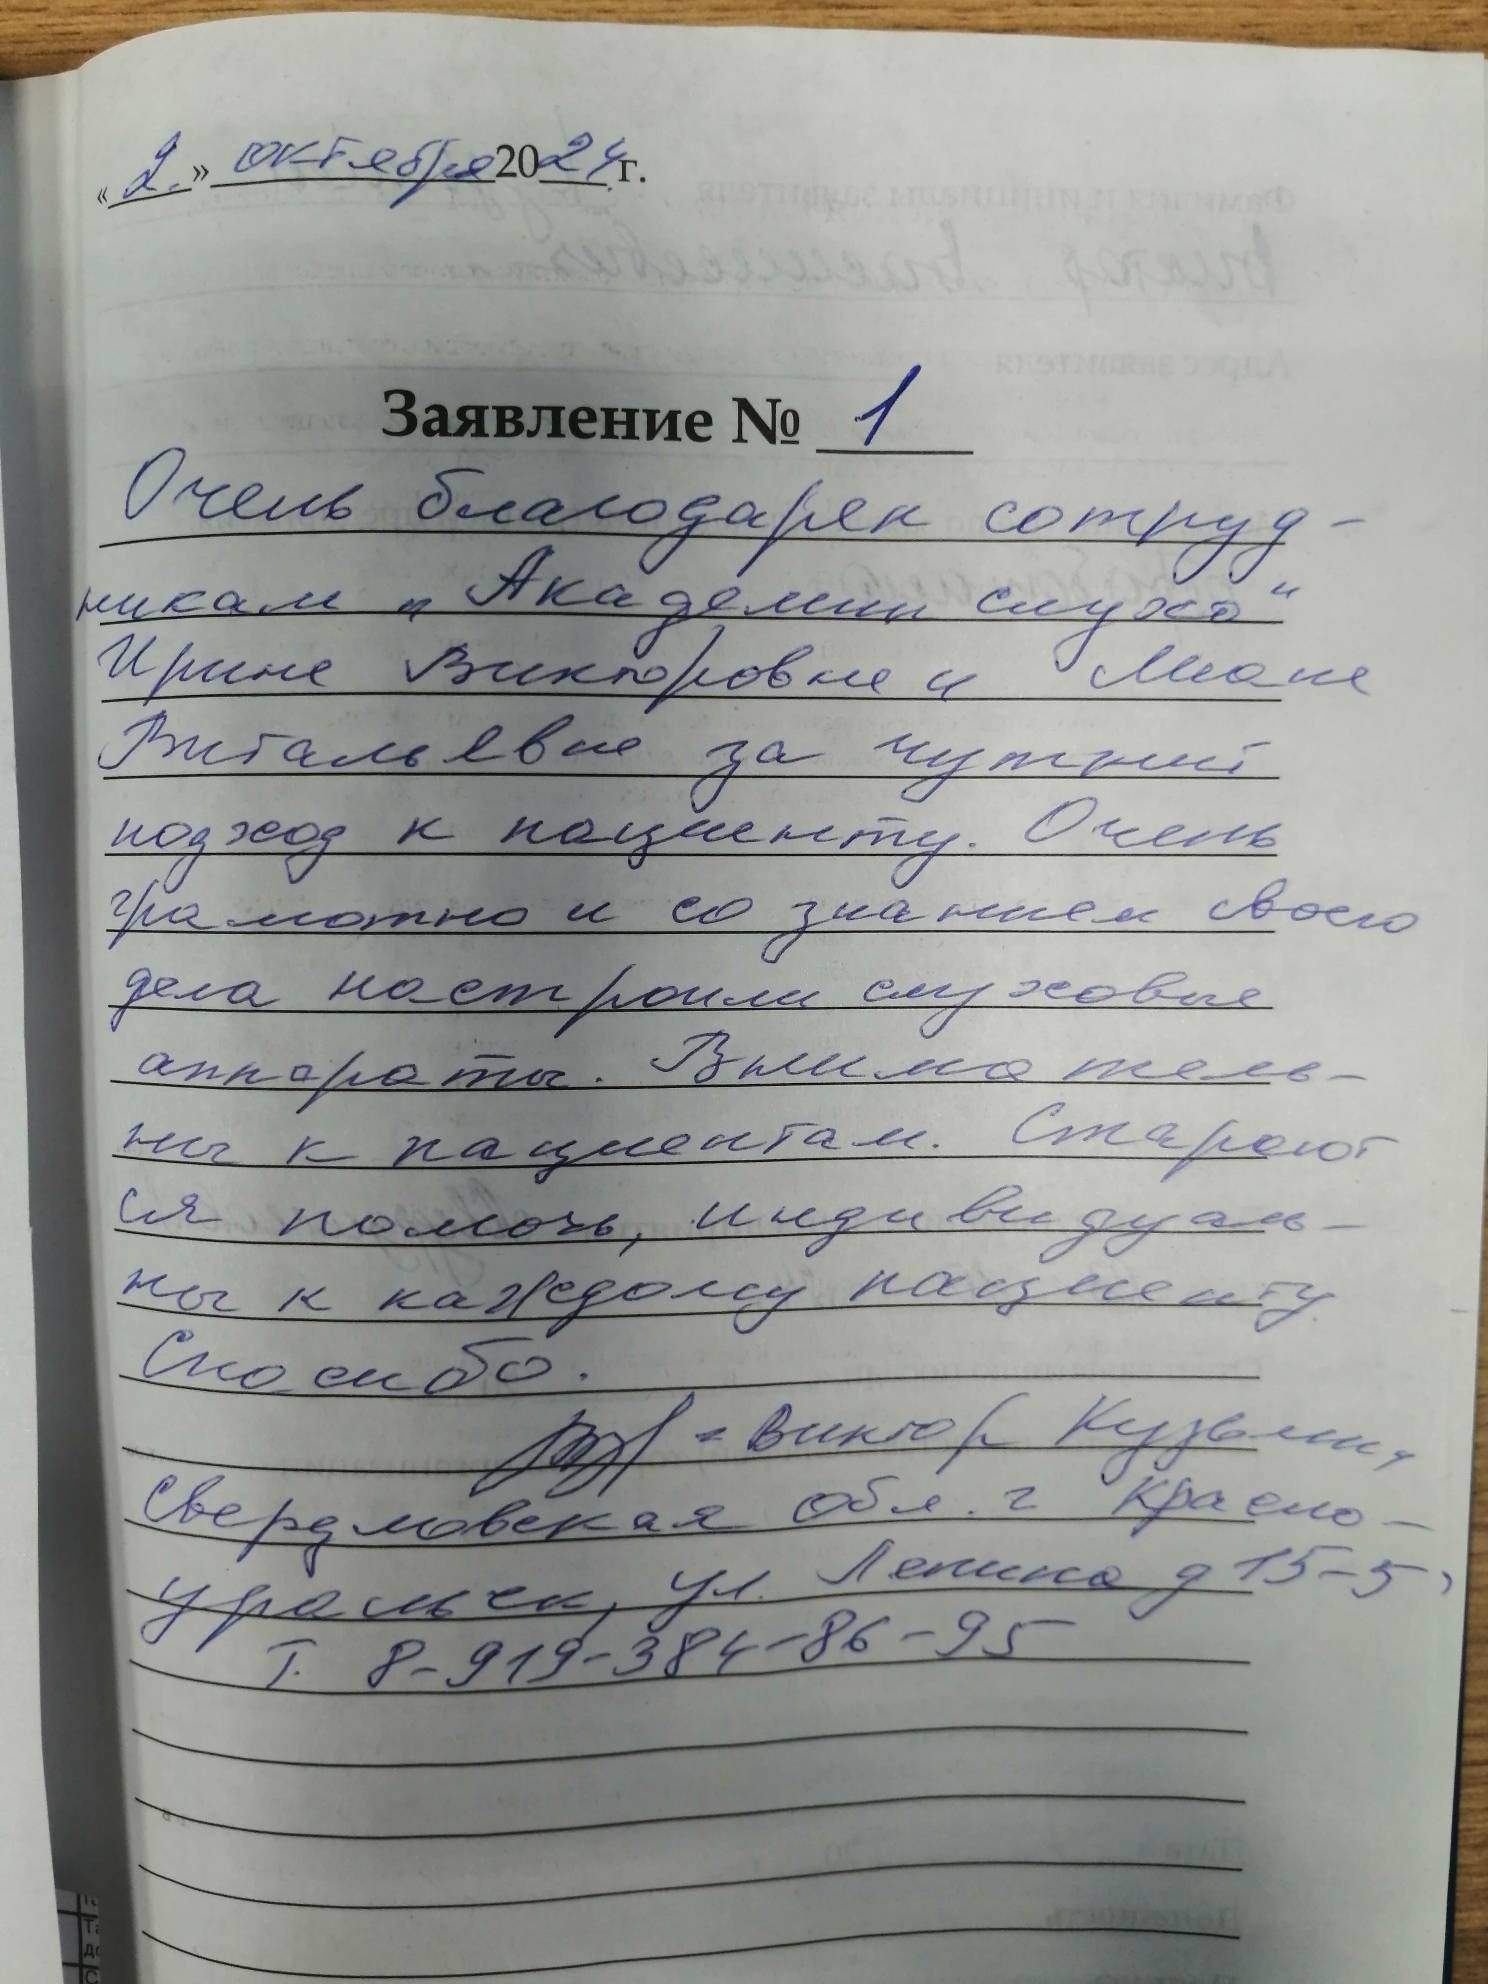 «2.» октября 2024 г.
Заявление № 1
Очень благодарен сотруд-
никам „Академии слуха"
Ирине Викторовне и Лиане
Витальевне за чуткий
подход к пациенту. Очень
грамотно и со знанием своего
дела настроили слуховые
аппараты. Вниматель-
ны к пациентам. Старают
ся помочь, индивидуаль-
ны к каждому пациенту.
Спасибо.
Виктор
Свердловская обл. г Красно-
уральск, ул. Ленина д 15-5,
т. 8-919-384-86-95